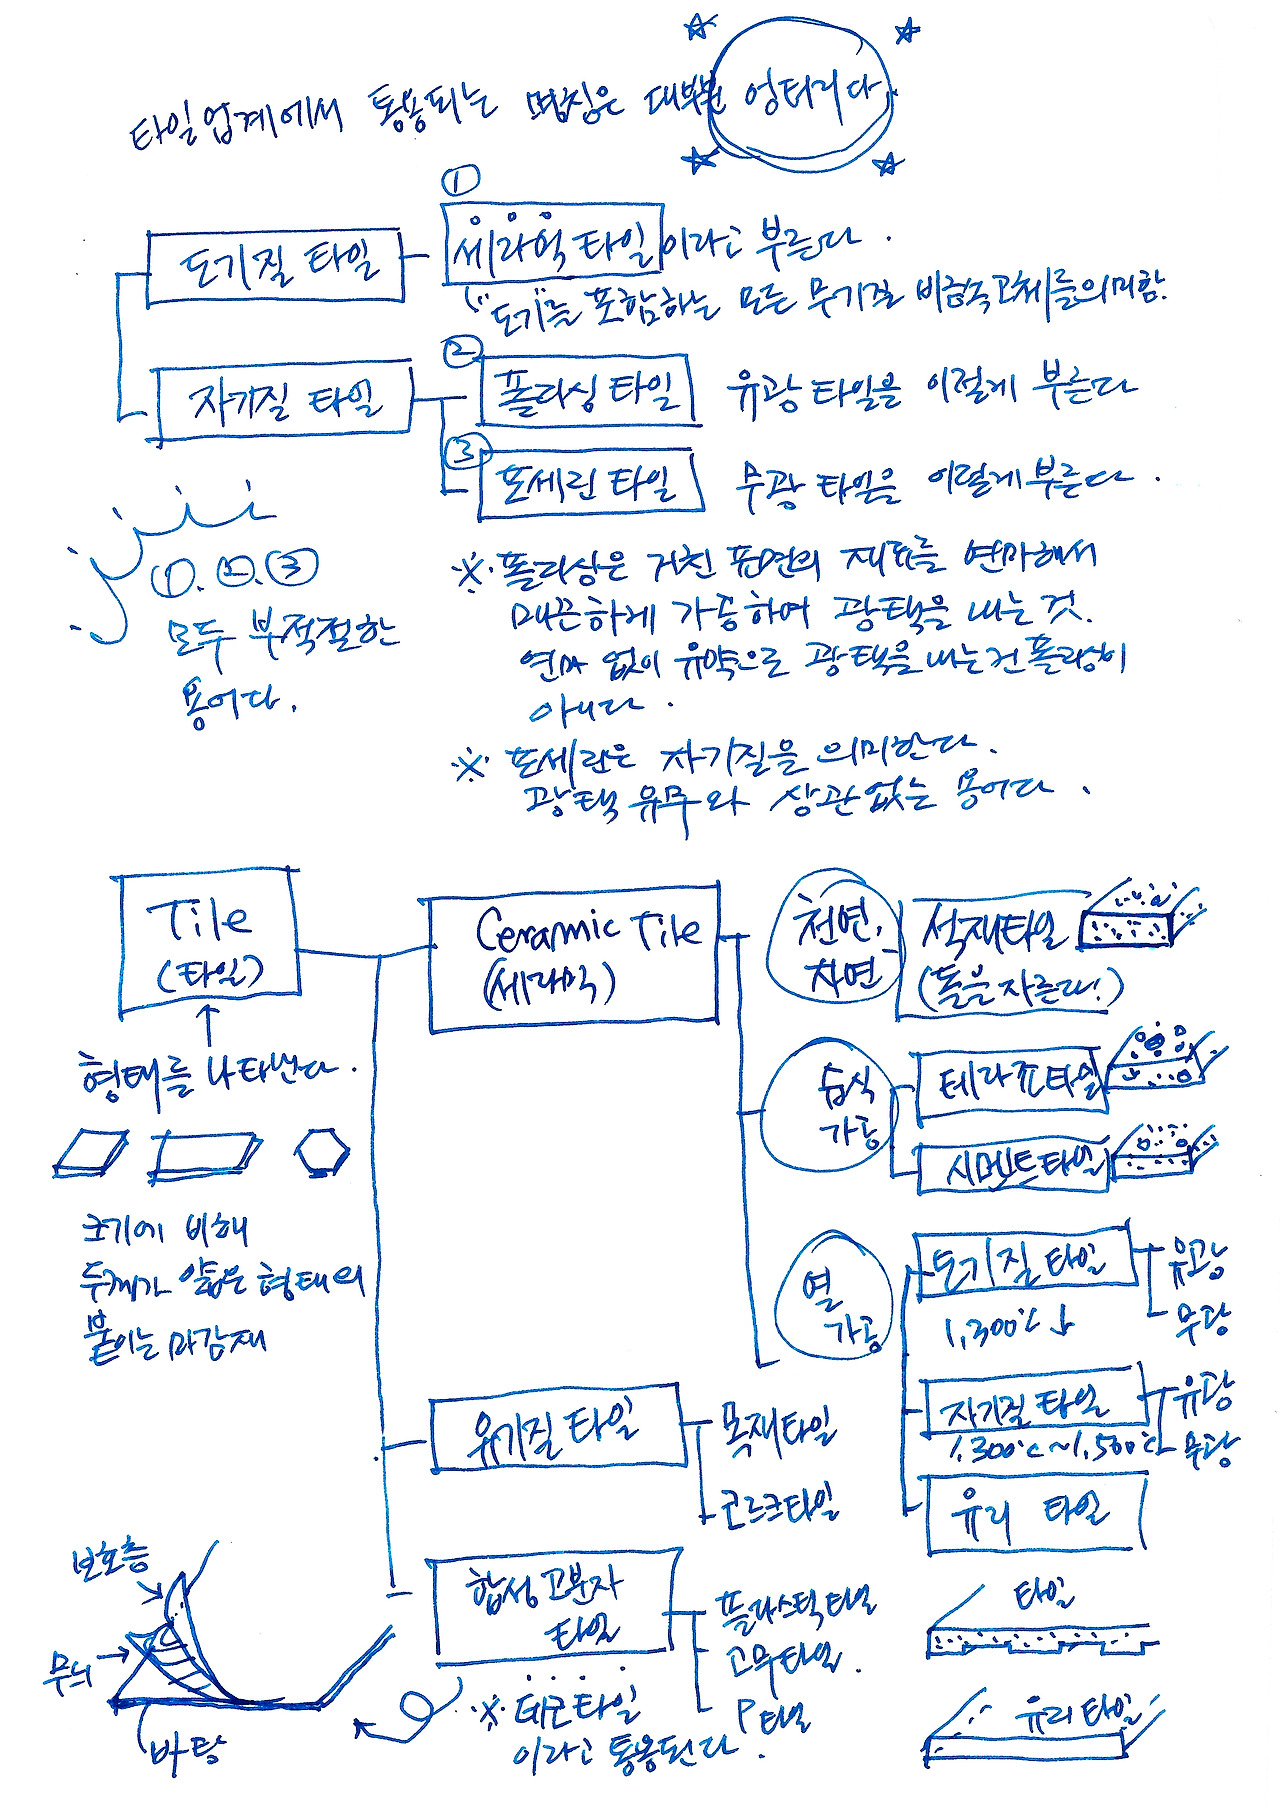 타일업계에서 통용되는 명칭은 대부분 엉터리다
①
도기질 타일
세라믹 타일 이라고 부른다.
"도기"를 포함하는 모든 무기질 비금속고체를의미함.
②
자기질 타일
폴리싱 타일
유광 타일을 이렇게 부른다
③
포세린 타일
무광 타일을 이렇게부른다.
①.②.③
모두 부적절한
용어다.
※ 폴리싱은 거친 표면의 재료를 연마해서
매끈하게 가공하여 광택을 내는 것.
연마 없이 유약으로 광택을 내는건 폴리싱이
아니다.
※ 포세린은 자기질을 의미한다.
광택 유무와 상관없는 용어다.
Tile
(타일)
Ceramic Tile
(세라믹)
천연.
자연
석재타일
(돌을 자른다!)
형태를 나타낸다.
습식
가공
테라쪼타일
시멘트타일
크기에 비해
두께가 얇은 형태의
붙이는 마감재
열
가공
도기질 타일
1,300℃↓
유광
무광
자기질 타일
1,300℃~1,500℃
유광
무광
유리 타일
유기질 타일
목재타일
코르크타일
합성고분자
타일
플라스틱타일
고무타일.
P타일
※ 데코타일
이라고 통용된다.
보호층
무늬
바탕
타일
유리타일